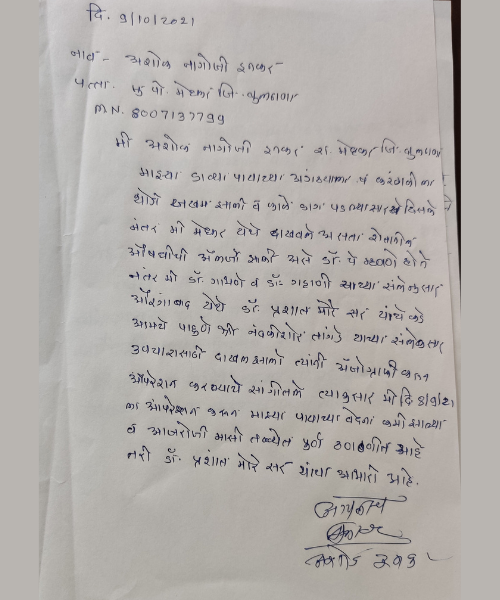 दि. 9/10/2021
नाव - अशोक नागोजी इनकर
पत्ता. मु. पो. मेहकर जि. बुलढाणा
M.N. 8007137799
मी अशोक नागोजी इनकर रा. मेहकर जि. बुलढाणा
माझ्या डाव्या पायाच्या अंगठ्याला व करंगळीला
थोडी जखम झाली व काळे डाग पडल्यासारखे दिसले
नंतर मी मेहकर येथे दाखवले असता
औषधीची अ‍ॅलर्जी झाली असे डॉ. चे म्हणणे होते
नंतर मी डॉ. गाभणे व डॉ. गट्टाणी याच्या सल्लेनुसार
औरंगाबाद येथे डॉ. प्रशांत मोरे सर यांचे कडे
आमचे पाहुणे श्री नंदकीशोर तांगडे याच्या सल्लेनुसार
उपचारासाठी दाखल झालो त्यांनी अँजोग्राफी करून
ऑपरेशन करण्याचे सांगीतले त्यानुसार मी दि 8/9/21
ला ऑपरेशन करून माझ्या पायाच्या वेदना कमी झाल्या
व आजरोजी माझी तब्येत पूर्ण ठणठणीत आहे
तरी डॉ. प्रशांत मोरे सर यांचा आभारी आहे.